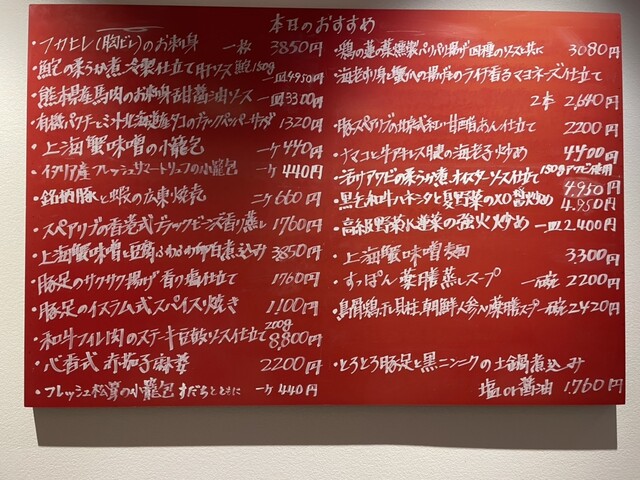 本日のおすすめ
・フカヒレ(胸ビレ)のお刺身 一枚 3850円
・鮑の柔らか煮 冷製仕立て 肝ソース 鮑150g 一皿4950円
・熊本産馬肉のお刺身甜醤油ソース 一皿3300円
・有機パクチーとミント北海道産タコのブラックペッパーサラダ 1320円
・上海蟹味噌の小籠包 一ケ440円
・イタリア産フレッシュサマートリュフの小籠包 一ケ440円
・銘柄豚と蝦の広東焼売 二ケ660円
・スペアリブの香港式ブラックビーンズ香り蒸し 1760円
・上海蟹味噌と豆腐ふわふわ卵白煮込み 3850円
・豚足のサクサク揚げ 香り塩仕立て 1760円
・豚足のイスラム式スパイス焼き 1,100円
・和牛フィレ肉のステーキ豆豉ソース仕立て 200g 8,800円
・心香式 赤茄子麻婆 2200円
・フレッシュ松茸の小籠包 すだちとともに 一ケ440円
・鶏の蓮の葉燻製パリパリ揚げ 四種のソースと共に 3080円
・海老すり身と蟹爪の揚げ ライチ香るマヨネーズ仕立て
2本 2,640円
・豚スペアリブの 甘酢あん仕立て 2200円
・ナマコと牛アキレス腱の海老子炒め 4400円
・活けアワビの柔らか煮 オイスターソース仕立て 150gアワビ使用 4,950円
・黒毛和牛ハネシタと夏野菜のXO醤炒め 4.950円
・高級野菜A蓮菜の強火炒め 一皿2400円
・上海蟹味噌麺 3300円
・すっぽん薬膳蒸しスープ 一碗2200円
・烏骨鶏、干し貝柱、朝鮮人参入り薬膳スープ 一碗2420円
・とろとろ豚足と黒ニンニクの土鍋煮込み
塩or醤油 1.760円